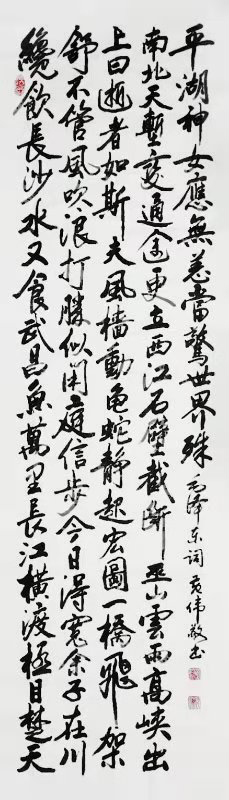 纔飲長沙水又食武昌魚萬里長江橫渡極目楚天
舒不管風吹浪打勝似閑庭信步今日得寬余子在川
上曰逝者如斯夫風檣動龜蛇靜起宏圖一橋飛架
南北天塹變通途更立西江石壁截斷巫山雲雨高峽出
平湖神女應無恙當驚世界殊 毛泽东词 偉敬书